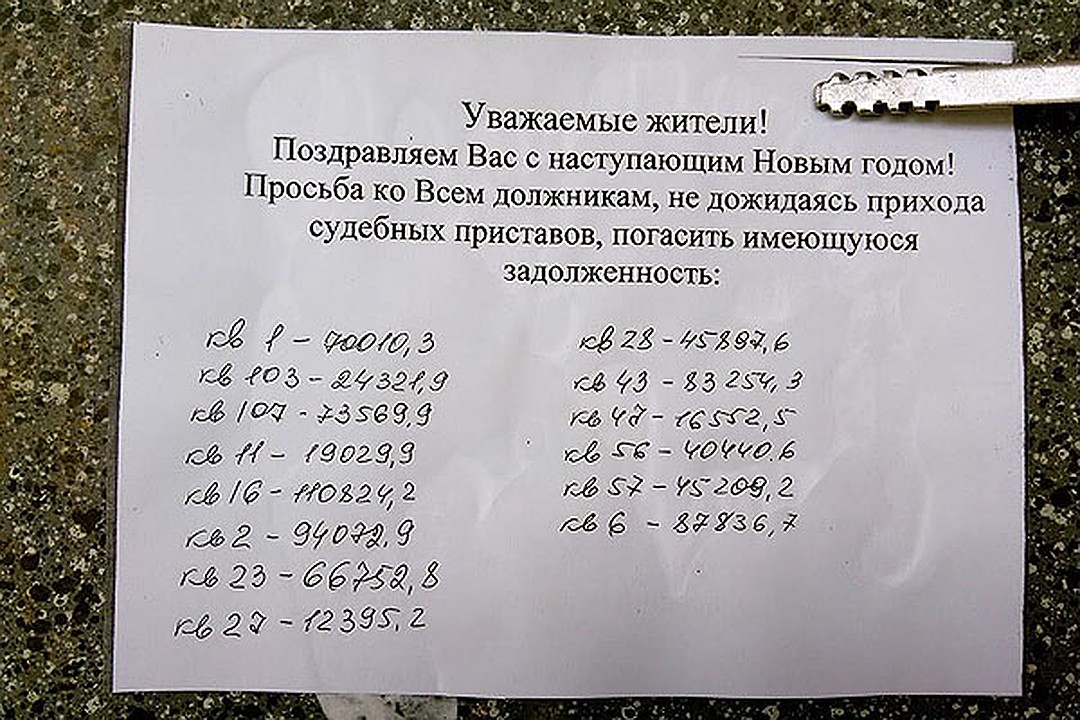 Уважаемые жители!
Поздравляем Вас с наступающим Новым годом!
Просьба ко Всем должникам, не дожидаясь прихода
судебных приставов, погасить имеющуюся
задолженность:
кв 1 - 70010,3
кв 103 - 24321,9
кв 107 - 73569,9
кв 11 - 19029,9
кв 16 - 110824,2
кв 2 - 94072.9
кв 23 - 66752,8
кв 27 - 12395,2
кв 28 - 45897,6
кв 43 - 83254,3
кв 47 - 16552,5
кв 56 - 40440.6
кв 57 - 45209,2
кв 6 - 87836,7